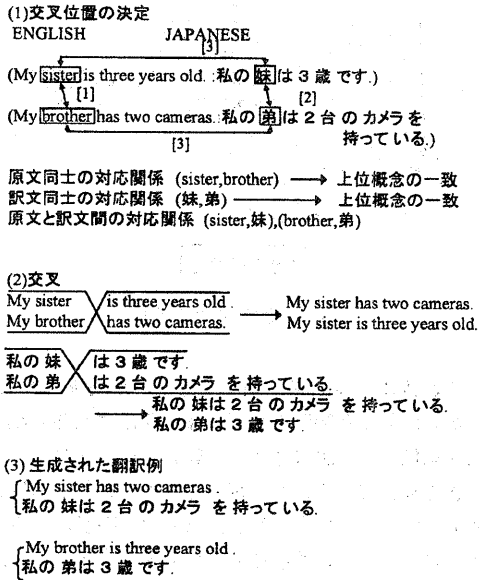 (1)交叉位置の決定
ENGLISH JAPANESE
[3]
(My sister is three years old. :私の 妹 は 3 歳 です.)
[1] [2]
(My brother has two cameras. :私の 弟 は 2 台 の カメラ を
持っている.)
[3]
原文同士の対応関係 (sister,brother) → 上位概念の一致
訳文同士の対応関係 (妹,弟) → 上位概念の一致
原文と訳文間の対応関係 (sister,妹),(brother,弟)
(2)交叉
My sister is three years old . → My sister has two cameras.
My brother has two cameras. My sister is three years old.
私の 妹 は 3 歳 です.
私の 弟 は 2 台 の カメラ を 持っている.
→ 私の 妹は 2 台 の カメラ を 持っている.
私の 弟は 3 歳 です.
(3) 生成された翻訳例
My sister has two cameras .
私の 妹は 2 台 の カメラ を 持っている.
My brother is three years old .
私の 弟は 3 歳 です.